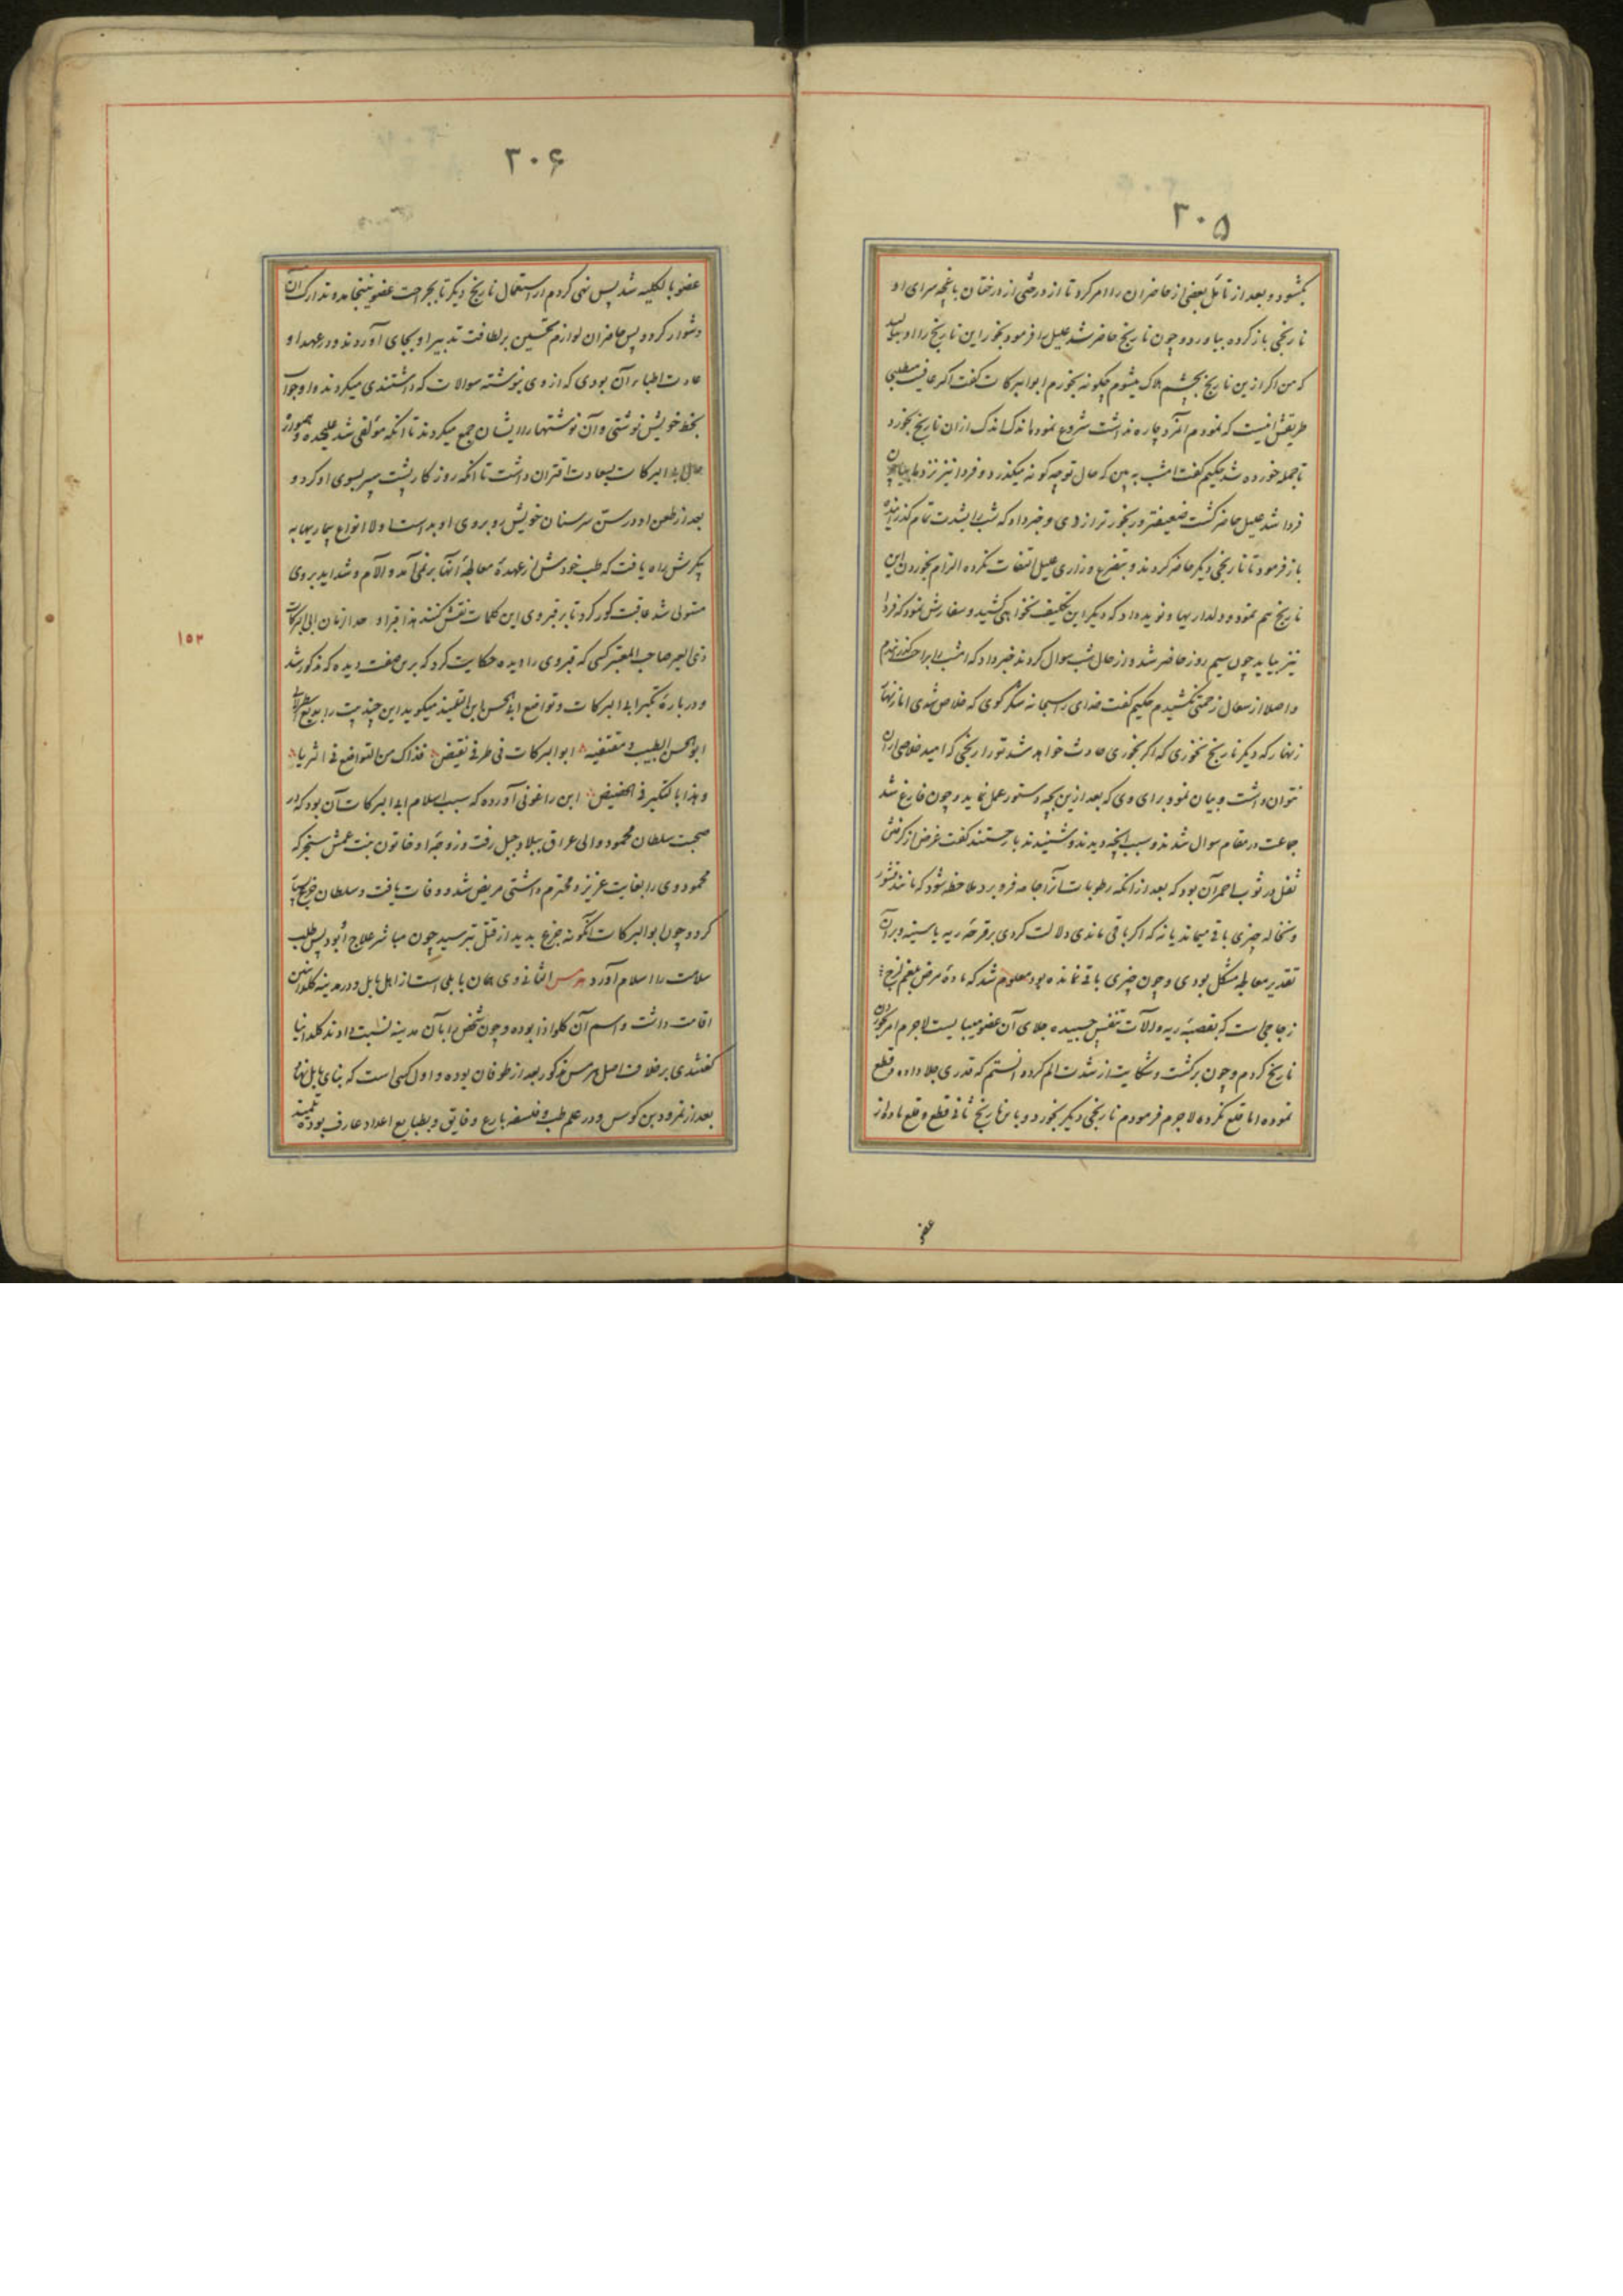 ۲۰۵
بگشود و بعد از تامل بعضی از حاضران را امر کرد تا از درختی از درختان باغچه سرای او
نارنجی باز کرده بیاورد و چون نارنج حاضر شد علیل را فرمود بخور این نارنج را او بنالید
که من اگر ازین نارنج بچشم هلاک میشوم چگونه بخورم ابوالبرکات گفت اگر عافیت میطلبی
طریقش اینست که نمودم آنمرد چاره نداشت شروع نمود اندک اندک ازان نارنج بخورد
تا جمله خورده شد حکیم گفت امشب به بین که حال تو چه گونه میگذرد و فردا نیز نزد ما بیا چون
فردا شد علیل حاضر گشت ضعیفتر و رنجورتر از دی و خبر داد که شب را بشدت تمام گذرانیده
باز فرمود تا نارنجی دیگر حاضر کردند و بتضرع و زاری علیل التفات نکرده الزام بخوردن این
نارنج هم نمود و ولداریها و نوید داد که دیگر این تکلیف نخواهی کشید و سفارش نمود که فردا
نیز بیاید چون سیم روز حاضر شد و از حال شب سوال کردند خبر داد که امشب را براحت گذرانیدم
و اصلا از سعال زحمتی نکشیدم حکیم گفت خدای را سبحانه شکر گوی که خلاص شدی اما زنهار
زنهار که دیگر نارنج نخوری که اگر بخوری حادث خواهد شد تو را رنجی که امید خلاصی از ان
نتوان داشت و بیان نمود برای وی که بعد ازین بچه دستور عمل نماید و چون فارغ شد
جماعت در مقام سوال شدند و سبب آنچه دیدند و شنیدند باز جستند گفت غرض از گرفتن
ثفل در ثوب احمر آن بود که بعد از آنکه رطوبات آنرا جامه فرو برد ملاحظه شود که مانند قشور
و نخاله چیزی باقی میماند یا نه که اگر باقی ماندی دلالت کردی بر قرحه ریه یا سینه و بر آن
تقدیر معالجه مشکل بودی و چون چیزی باقی نمانده بود معلوم شد که ماده مرض بلغم لزج
زجاجی است که بقصبه ریه و آلات تنفس چسبیده جلای آن عضو میبایست لاجرم امر بخوردن
نارنج کردم و چون برگشت و شکایت از شدت الم کرد دانستم که قدری جلا داده و قطع
نموده اما قلع نکرده لاجرم فرمودم نارنجی دیگر بخورد و باین نارنج ثانی قطع و قلع ماده از
عضو
۲۰۶
عضو بالکلیه شد پس نهی کردم از استعمال نارنج دیگر تا بجراحت عضو نینجامد و تدارک آن
دشوار گردد پس حاضران لوازم تحسین بر لطافت تدبیر او بجای آوردند و در عهد او
عادت اطباء آن بودی که از وی نوشته سوالات که داشتندی میکردند و او جواب
بخط خویش نوشتی و آن نوشتها را ایشان جمع میکردند تا آنکه مولفی شد علیحده و همواره
حال ابی البرکات بسعادت اقتران داشت تا انکه روزگار پشت سپر بسوی او کرد و
بعد از طعن او در سن سر سنان خویش رو بروی او بداشت اولا انواع بیماریها به
پیکرش راه یافت که طب خودش از عهدهٔ معالجهٔ آنها بر نمی آمد و آلام و شداید بر وی
مستولی شد عاقبت کور کرد تا بر قبر وی این کلمات نقش کنند هذا قبر اوحد الزمان ابی البرکات
ذی العبر صاحب المعتبر کسی که قبر وی را دیده حکایت کرد که برین صفت دیده که مذکور شد
و در باره تکبر ابی البرکات و تواضع ابی الحسن ابن التلمیذ میگوید این چند بیت را بدیع اسطرلابی
ابو الحسن الطبیب و مقتفیه ابو البرکات فی طرفی نقیض فذاک من التواضع فی الثریا
و هذا بالتکبر فی الحضیض ابن زاغونی آورده که سبب اسلام ابی البرکات آن بود که در
صحبت سلطان محمود والی عراق ببلاد جبل رفت و زوجهٔ او خاتون بنت عمش سنجر که
محمود وی را بغایت عزیز و محترم داشتی مریض شد و وفات یافت و سلطان جزع بسیار
کرد و چون ابو البرکات آنگونه جزع بدید از قتل بترسید چون مباشر علاج او بود پس طلب
سلامت را اسلام آورد هرمس الثانی وی همان بابلی است از اهل بابل و در مدینه کلدانیین
اقامت داشت و اسم آن کلواذا بوده و چون شخص را بآن مدینه نسبت دادند کلدانیا
گفتندی بر خلاف اصل هرمس مذکور بعد از طوفان بوده و اول کسی است که بنای بابل نهاد
بعد از نمرود بن کوس و در علم طب و فلسفه بارع و فایق و بطبایع اعداد عارف بوده تلمیذ
۱۵۳